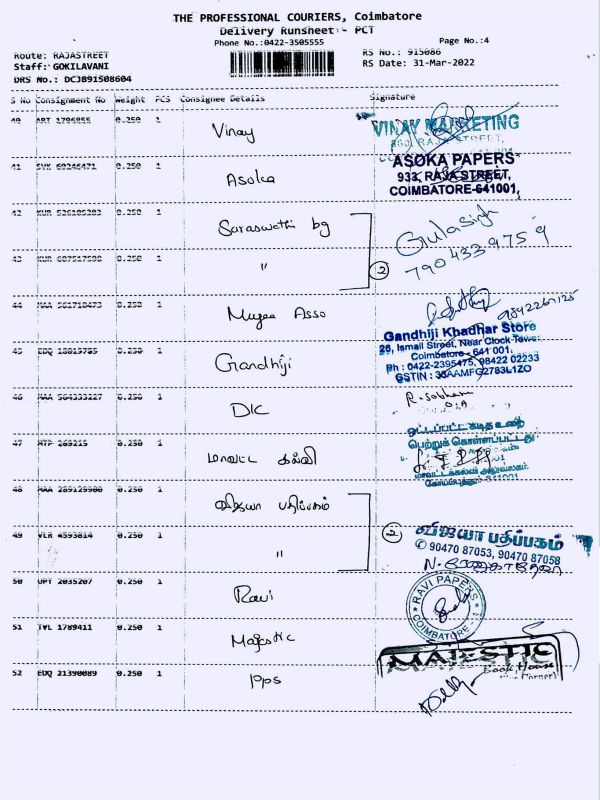 THE PROFESSIONAL COURIERS, Coimbatore
Delivery Runsheet - PCT
Phone No.:0422-3505555
Page No.:4
Route: RAJASTREET
RS No.: 915086
Staff: GOKILAVANI
RS Date: 31-Mar-2022
DRS No.: DCJB91508604
S No Consignment No Weight PCS Consignee Details Signature
40 ART 0.250 1 Vinay VINAY MARKETING
41 0.250 1 Asoka ASOKA PAPERS
933, RAJA STREET,
COIMBATORE-641001
42 KUR 0.250 1 Saraswathi bg Gulasingh
43 KUR 0.250 1 " 2 7904339759
44 MAA 0.250 1 Asso 9842267125
45 EDQ 0.250 1 Gandhiji Gandhiji Khadhar Store
26, Ismail Street, Near Clock Tower
Coimbatore - 641 001.
Ph : 0422-2395475, 98422 02233
46 MAA 0.250 1 DIC R. Sobhana
47 MTP 269215 0.250 1 மாவட்ட கல்வி ஒட்டப்பட்ட கடித உறை
பெற்றுக் கொள்ளப்பட்டது
48 MAA 289129900 0.250 1 விஜயா பதிப்பகம்
49 VLR 4593814 0.250 1 " 2 விஜயா பதிப்பகம்
90470 87053, 90470 87058
50 UPT 2035207 0.250 1 Ravi RAVI PAPERS
COIMBATORE - 1
51 TVL 1789411 0.250 1 Majestic MAJESTIC
Book House
52 EDQ 21390089 0.250 1 PPS